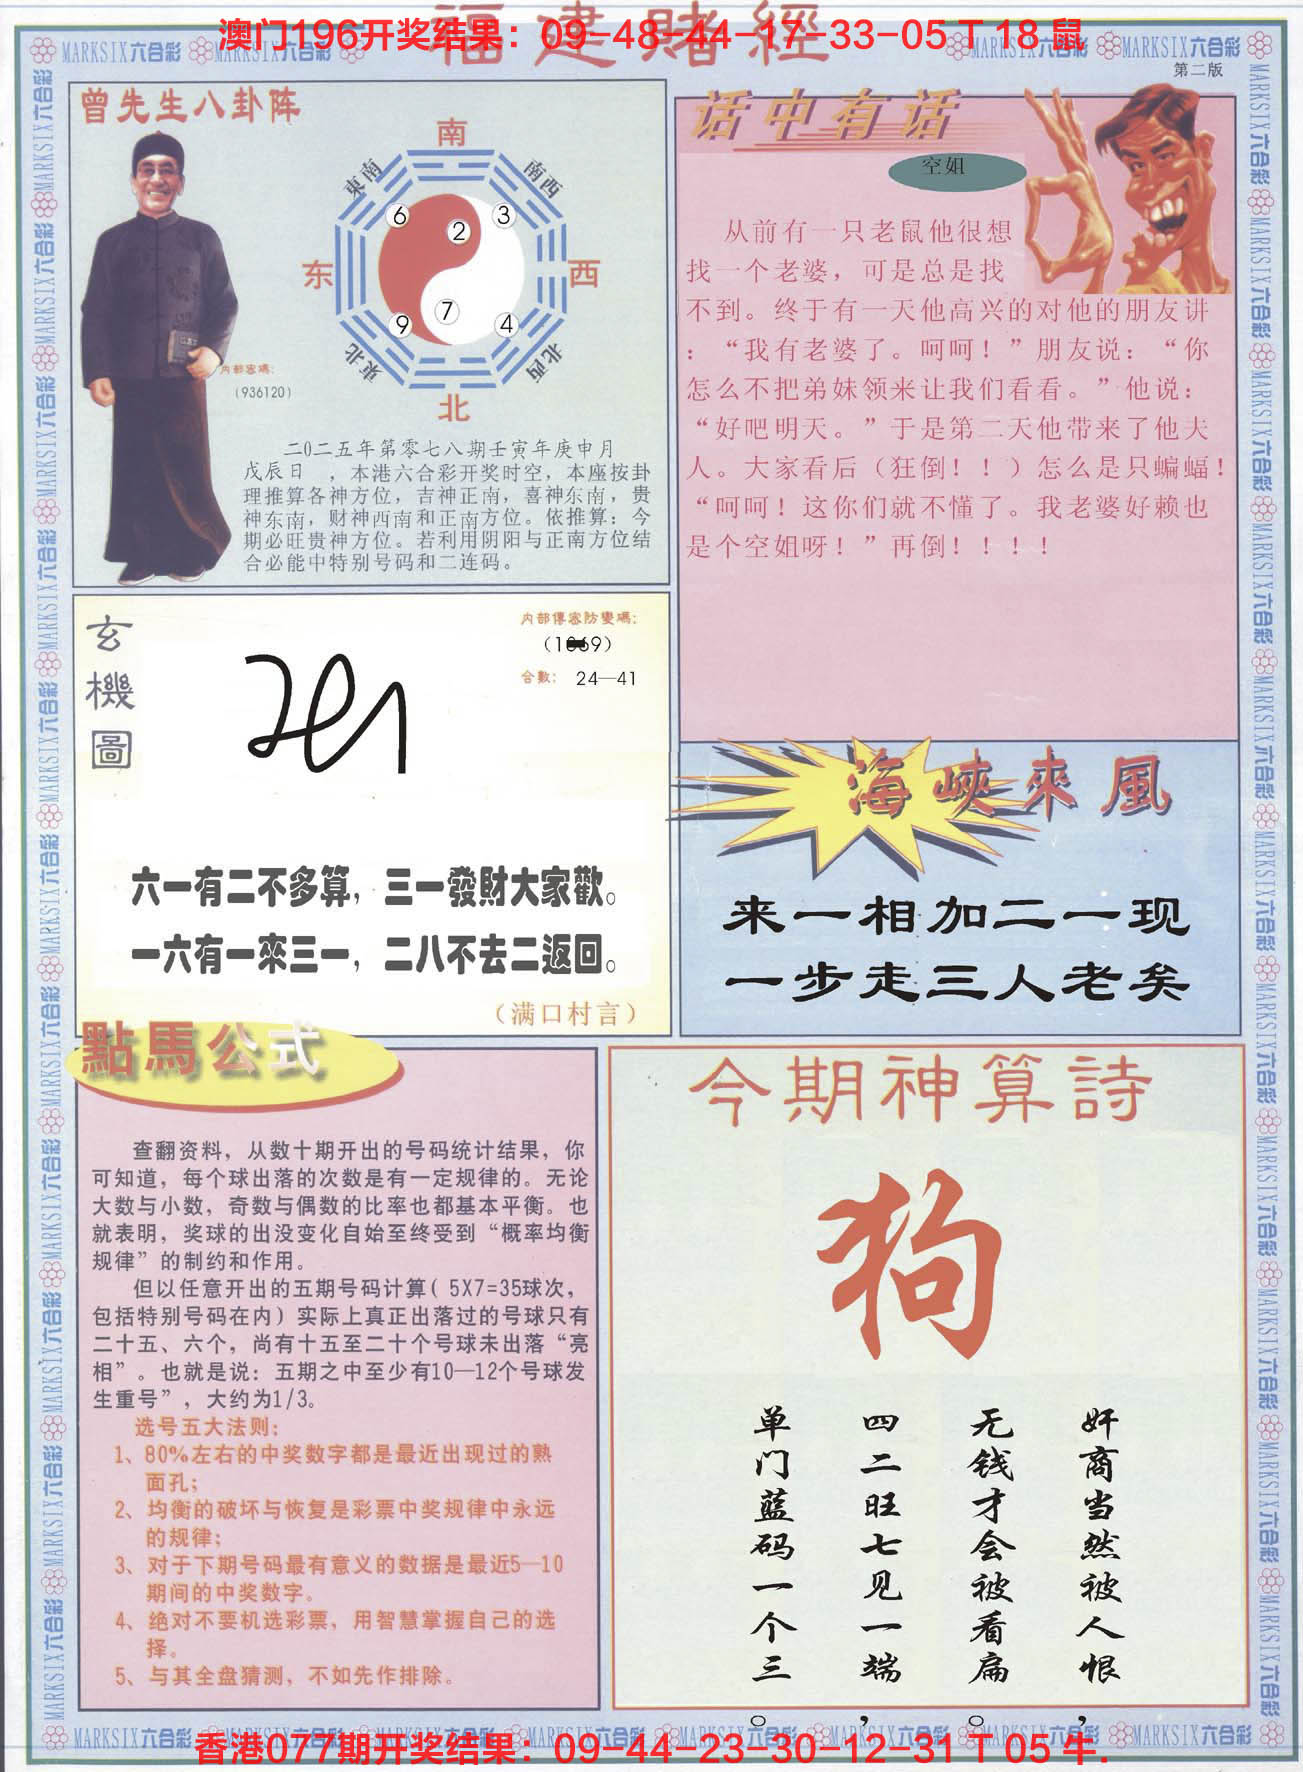 福建賭經
澳门196开奖结果：09-48-44-17-33-05 T 18 鼠
MARKSIX六合彩 MARKSIX六合彩 MARKSIX六合彩 MARKSIX六合彩
第二版
曾先生八卦阵
南
東南 南西
6 2 3
东 西
9 7 4
東北 北西
北
内部密碼：
（936120）
二0二五年第零七八期壬寅年庚申月
戊辰日 ，本港六合彩开奖时空，本座按卦
理推算各神方位，吉神正南，喜神东南，贵
神东南，财神西南和正南方位。依推算：今
期必旺贵神方位。若利用阴阳与正南方位结
合必能中特别号码和二连码。
话中有话
空姐
从前有一只老鼠他很想
找一个老婆，可是总是找
不到。终于有一天他高兴的对他的朋友讲
：“我有老婆了。呵呵！”朋友说：“你
怎么不把弟妹领来让我们看看。”他说：
“好吧明天。”于是第二天他带来了他夫
人。大家看后（狂倒！！）怎么是只蝙蝠！
“呵呵！这你们就不懂了。我老婆好赖也
是个空姐呀！”再倒！！！！
玄機圖
内部傳密防變碼：
合數： 24—41
六一有二不多算，三一發財大家歡。
一六有一來三一，二八不去二返回。
（满口村言）
海峽來風
来一相加二一现
一步走三人老矣
點馬公式
查翻资料，从数十期开出的号码统计结果，你
可知道，每个球出落的次数是有一定规律的。无论
大数与小数，奇数与偶数的比率也都基本平衡。也
就表明，奖球的出没变化自始至终受到“概率均衡
规律”的制约和作用。
但以任意开出的五期号码计算（5X7=35球次，
包括特别号码在内）实际上真正出落过的号球只有
二十五、六个，尚有十五至二十个号球未出落“亮
相”。也就是说：五期之中至少有10—12个号球发
生重号”，大约为1/3。
选号五大法则：
1、80%左右的中奖数字都是最近出现过的熟
面孔；
2、均衡的破坏与恢复是彩票中奖规律中永远
的规律；
3、对于下期号码最有意义的数据是最近5—10
期间的中奖数字。
4、绝对不要机选彩票，用智慧掌握自己的选
择。
5、与其全盘猜测，不如先作排除。
今期神算詩
狗
奸商当然被人恨，
无钱才会被看扁。
四二旺七见一端，
单门蓝码一个三。
MARKSIX六合彩 MARKSIX六合彩 MARKSIX六合彩 MARKSIX六合彩 MARKSIX六合彩 MARKSIX六合彩 MARKSIX六合彩 MARKSIX六合彩
香港077期开奖结果：09-44-23-30-12-31 T 05 牛.